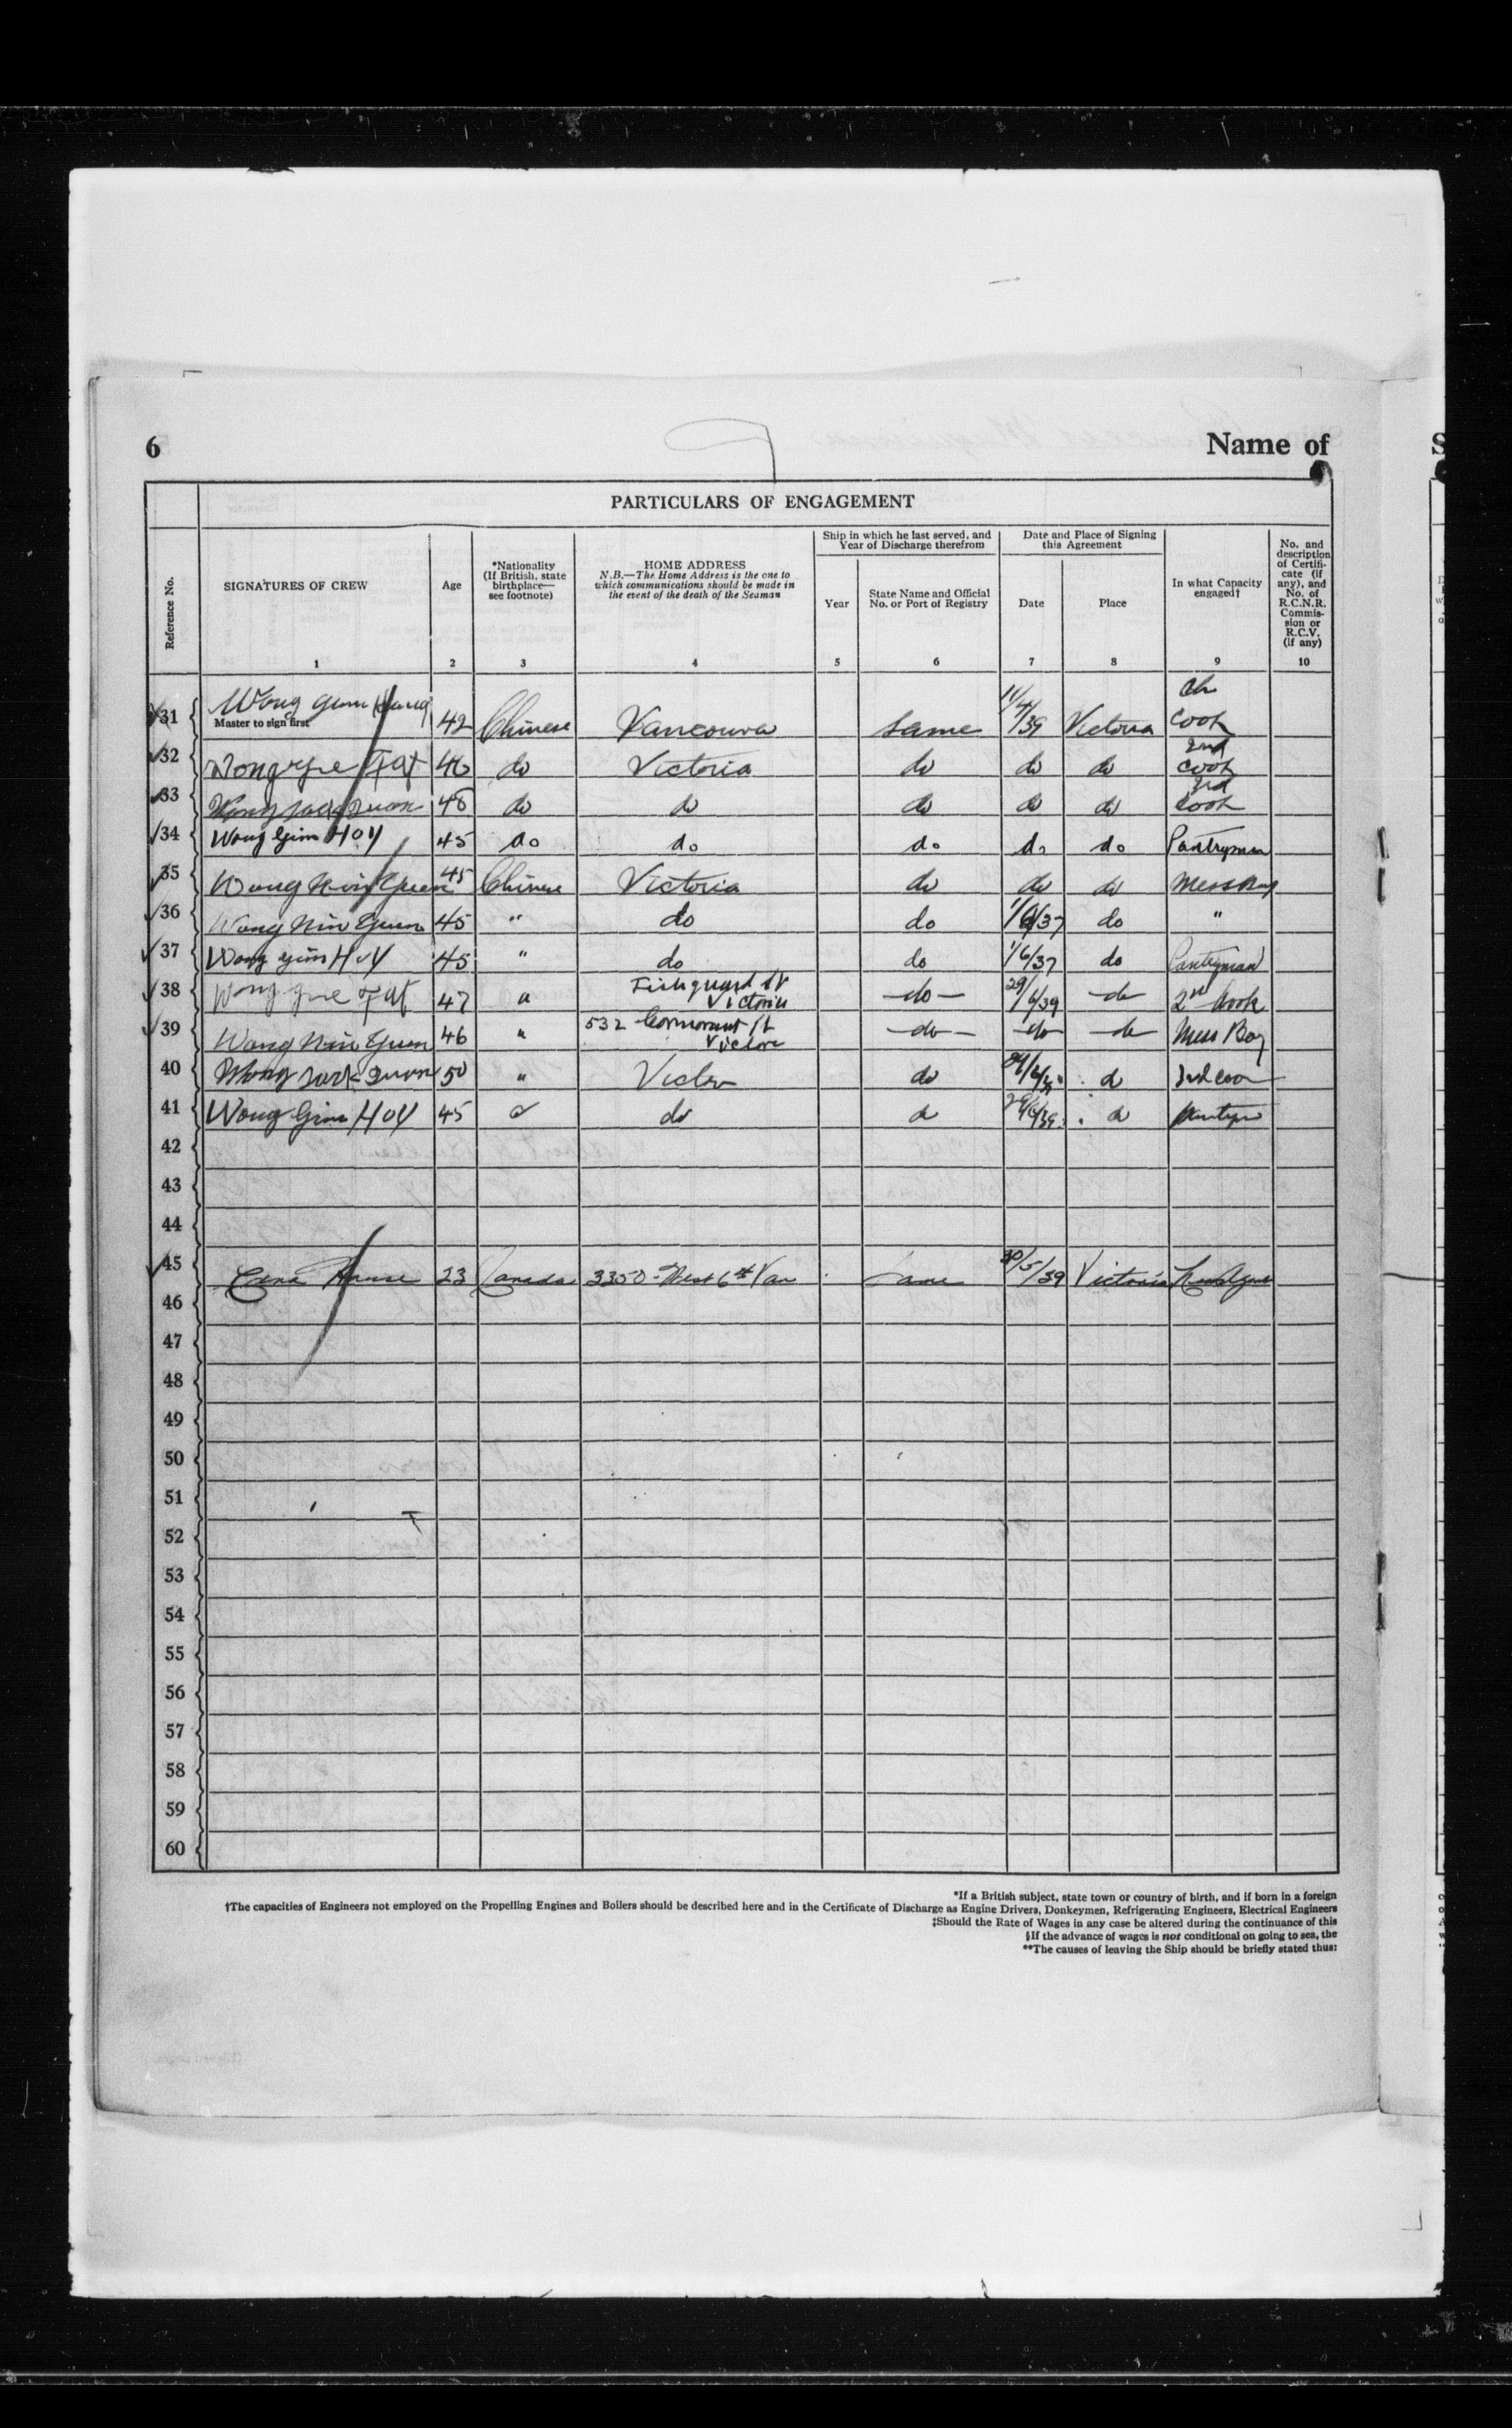 6
Name of
PARTICULARS OF ENGAGEMENT
Reference No.
SIGNATURES OF CREW
1
Age
2
*Nationality
(If British, state
birthplace—
see footnote)
3
HOME ADDRESS
N.B.—The Home Address is the one to
which communications should be made in
the event of the death of the Seaman
4
Ship in which he last served, and
Year of Discharge therefrom
Year
5
State Name and Official
No. or Port of Registry
6
Date and Place of Signing
this Agreement
Date
7
Place
8
In what Capacity
engaged†
9
No. and
description
of Certifi-
cate (if
any), and
No. of
R.C.N.R.
Commis-
sion or
R.C.V.
(if any)
10
31 Wong 42 Chinese Vancouver Same 39 Victoria Ch Cook
Master to sign first
32 Wong Yue Fat 46 do Victoria do do do 2nd Cook
33 Wong Jack Quon 48 do do do do do 3rd Cook
34 Wong Gim HOY 45 do do do do do Pantryman
35 Wong 45 Chinese Victoria do do do Mess Boy
36 Wong Nin Yuen 45 " do do 1/6/37 do "
37 Wong Gim HOY 45 " do do 1/6/37 do Pantryman
38 Wong Yue Fat 47 " Fishguard St Victoria do 29/6/39 do 2nd Cook
39 Wong Nin Yuen 46 " 532 Cormorant St Victoria do do do Mess Boy
40 Wong Jack Quon 50 " do
41 Wong Gim HOY 45 do do 29/6/39
42
43
44
45 23 Canada 3350 West 6th Van Same 30/5/39 Victoria
46
47
48
49
50
51
52
53
54
55
56
57
58
59
60
*If a British subject, state town or country of birth, and if born in a foreign
†The capacities of Engineers not employed on the Propelling Engines and Boilers should be described here and in the Certificate of Discharge as Engine Drivers, Donkeymen, Refrigerating Engineers, Electrical Engineers
‡Should the Rate of Wages in any case be altered during the continuance of this
§If the advance of wages is not conditional on going to sea, the
**The causes of leaving the Ship should be briefly stated thus: